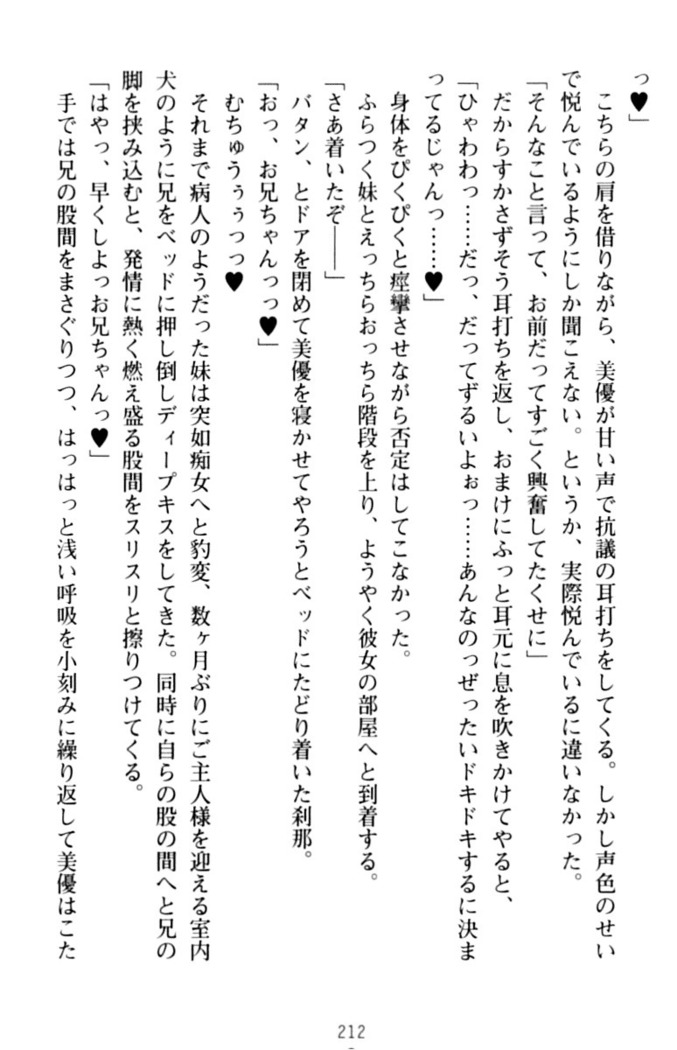 っ♥」
　こちらの肩を借りながら、美優が甘い声で抗議の耳打ちをしてくる。しかし声色のせい
で悦んでいるようにしか聞こえない。というか、実際悦んでいるに違いなかった。
「そんなこと言って、お前だってすごく興奮してたくせに」
　だからすかさずそう耳打ちを返し、おまけにふっと耳元に息を吹きかけてやると、
「ひゃわわっ……だっ、だってずるいよぉっ……あんなのっぜったいドキドキするに決ま
ってるじゃんっ……♥」
　身体をぴくぴくと痙攣させながら否定はしてこなかった。
　ふらつく妹とえっちらおっちら階段を上り、ようやく彼女の部屋へと到着する。
「さあ着いたぞ――」
　バタン、とドアを閉めて美優を寝かせてやろうとベッドにたどり着いた刹那。
「おっ、お兄ちゃんっっ♥」
　むちゅうぅぅっっ♥
　それまで病人のようだった妹は突如痴女へと豹変、数ヶ月ぶりにご主人様を迎える室内
犬のように兄をベッドに押し倒しディープキスをしてきた。同時に自らの股の間へと兄の
脚を挟み込むと、発情に熱く燃え盛る股間をスリスリと擦りつけてくる。
「はやっ、早くしよっお兄ちゃんっ♥」
　手では兄の股間をまさぐりつつ、はっはっと浅い呼吸を小刻みに繰り返して美優はこた
212